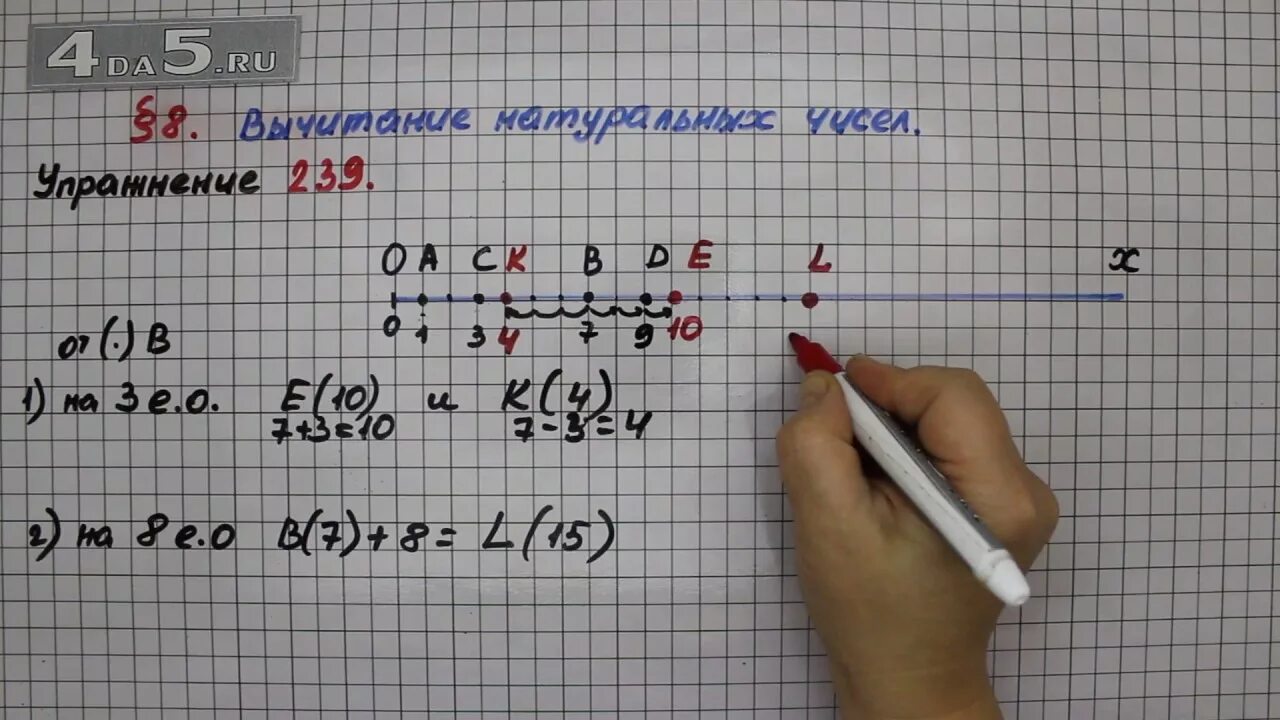 4DA5.RU
§8. Вычитание натуральных чисел.
Упражнение 239.
O A C K B D E L x
0 1 3 4 7 9 10
от (·) B
1) на 3 е.о. E(10) и K(4)
7+3=10 7-3=4
2) на 8 е.о B(7)+8= L(15)